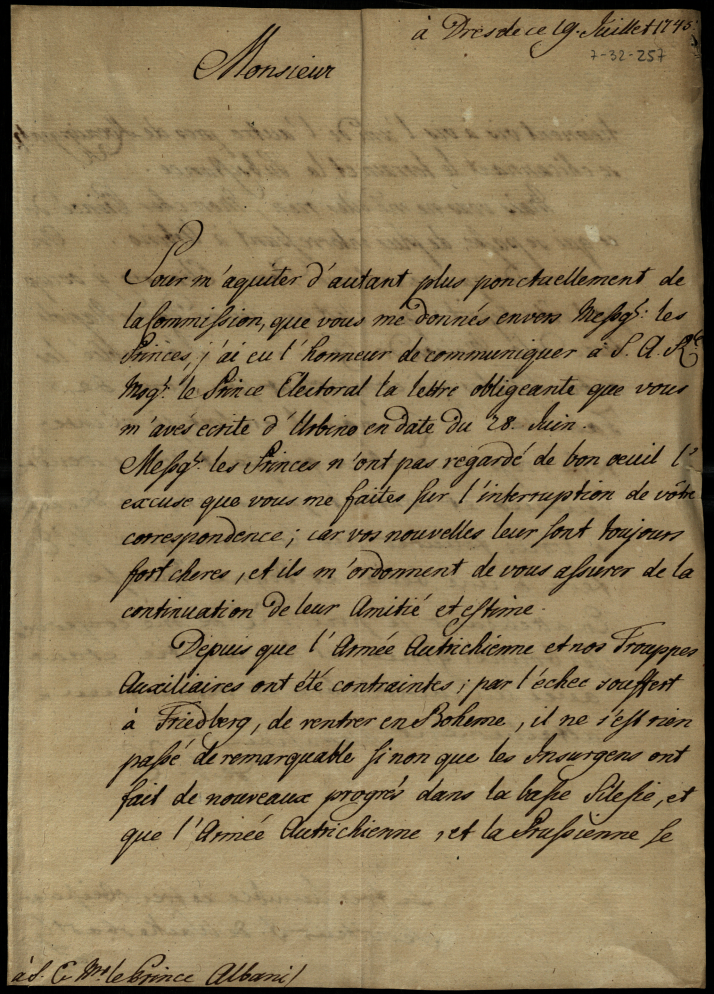 à Dresde ce 19. Juillet 1745.
7-32-257
Monsieur
Pour m'aquiter d'autant plus ponctuellement de
la Commission, que vous me donnés envers Messgrs: les
Princes, j'ai eu l'honneur de communiquer à S. A. Rle
Msgr. le Prince Electoral la lettre obligeante que vous
m'avés ecrite d'Urbino en date du 28. Juin.
Messgrs. les Princes n'ont pas regardé de bon oeuil l'
excuse que vous me faites sur l'interruption de vôtre
correspondence; car vos nouvelles leur sont toujours
fort cheres, et ils m'ordonnent de vous assurer de la
continuation de leur Amitié et estime.
Depuis que l'Armée Autrichienne et nos Trouppes
Auxiliaires ont été contraintes, par l'échec souffert
à Friedberg, de rentrer en Boheme, il ne s'est rien
passé de remarquable sinon que les Insurgens ont
fait de nouveaux progrés dans la basse Silesie, et
que l'Armée Autrichienne, et la Prussienne se
à S. E. Mr. le Prince Albani